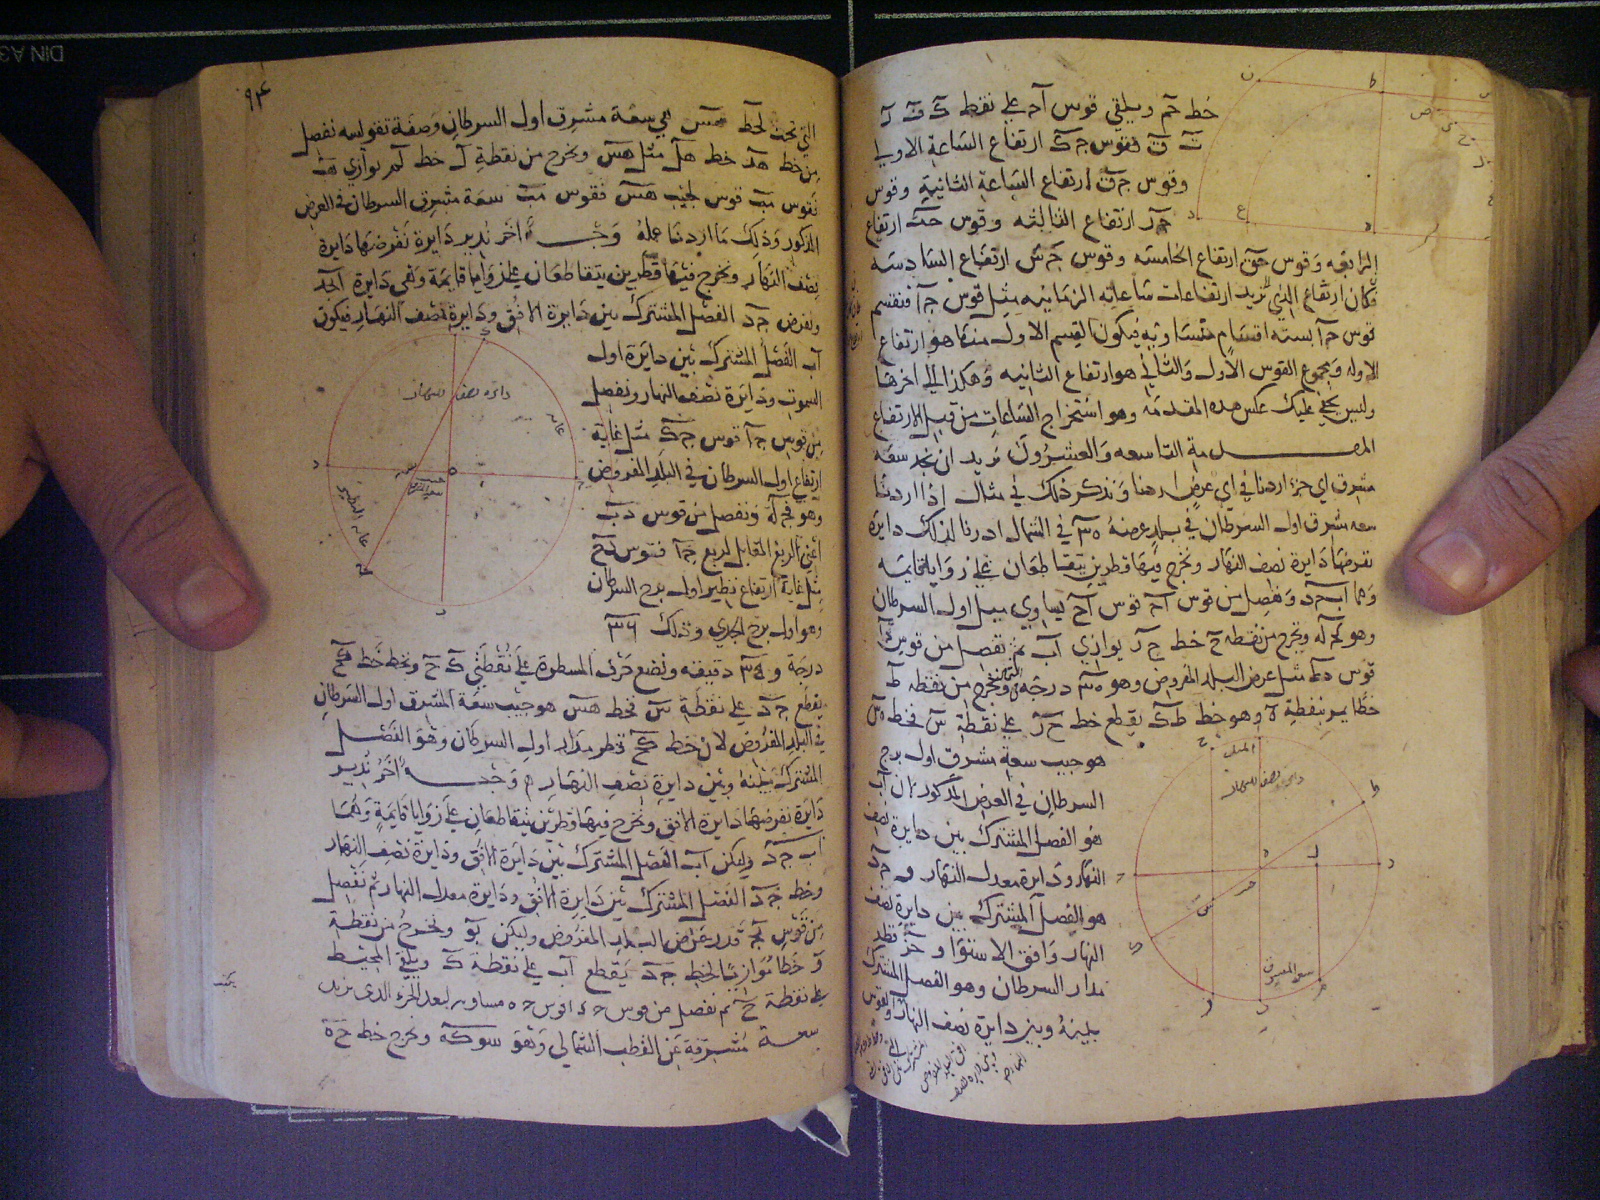 خط حم ويلقي قوس آد على نقط ك ف ر
ت ق فقوس جك ارتفاع الساعة الاولى
وقوس جف ارتفاع الساعة الثانية وقوس
جر ارتفاع الثالثه وقوس جت ارتفاع
الرابعه وقوس جق ارتفاع الخامسه وقوس جش ارتفاع السادسه
فكان ارتفاع الذي نريد ارتفاعات ساعاته الزمانيه مثل قوس جا فنقسم
قوس جا بسته اقسام متساويه فيكون القسم الاول منها هو ارتفاع
الاوله ومجموع القوس الاول والثاني هو ارتفاع الثانيه وهكذا الى اخرها
وليس يخفى عليك عكس هذه المقدمة وهو استخراج الساعات من قبل الارتفاع
المقدمة التاسعه والعشرون نريد ان نجد سعة
مشرق اي جزء اردنا في اي عرض اردنا ونذكر ذلك في مثال اذا اردنا
سعه مشرق اول السرطان في بلد عرضه ٣٥ في الشمال ادرنا لذلك دايرة
نفرضها دايرة نصف النهار ونخرج فيها قطرين يتقاطعان على زوايا قايمه
وهما اب جد ونفصل من قوس اج قوس اح يساوي ميل اول السرطان
وهو كج له ونخرج من نقطه ح خط حر يوازي اب ثم نفصل من قوس
قوس دط مثل عرض البلد المفروض وهو ٣٥ درجة ونخرج من نقطه ط
خطا يمر بنقطة ه وهو خط طك يقطع خط حر على نقطة س فخط هس
هو جيب سعة مشرق اول برج
السرطان في العرض المذكور لان اب
هو الفصل المشترك بين دايرة نصف
النهار ودايرة معدل النهار و جد
هو الفصل المشترك بين دايرة نصف
النهار وافق الاستوا و حر قطر
مدار السرطان وهو الفصل المشترك
بينه وبين دايرة نصف النهار والقوس
دايرة نصف النهار
سعة المشرق
الميل
٩٤
التي تحت لخط هس هي سعة مشرق اول السرطان وصفة تقويسه نفصل
من خط هد خط هل مثل هس ونخرج من نقطة ل خط لم يوازي هب
فقوس مب قوس لجيب هس فقوس مب سعة مشرق السرطان في العرض
المذكور وذلك ما اردنا عمله وجه اخر ندير دايرة نفرضها دايرة
نصف النهار ونخرج فيها قطرين يتقاطعان على زوايا قايمة وهي دايرة ابجد
ولنفرض جد الفصل المشترك بين دايرة الافق ودايرة نصف النهار فيكون
اب الفصل المشترك بين دايرة اول
السموت ودايرة نصف النهار ونفصل
من قوس جا قوس جك مثل غاية
ارتفاع اول السرطان في البلد المفروض
وهو عح له ونفصل من قوس دب
اعني الربع المقابل لربع جا قوس دح
مثل غاية ارتفاع نظير اول برج السرطان
وهو اول برج الجدي وذلك
درجة و دقيقه ونضع حرف المسطرة على نقطتي ك ح ونخط خط كح
يقطع جد على نقطة س فخط هس هو جيب سعة المشرق اول السرطان
في البلد المفروض لان خط كح قطر مدار اول السرطان وهو الفصل
المشترك بينه وبين دايرة نصف النهار وجه اخر ندير
دايرة نفرضها دايرة الافق ونخرج فيها قطرين يتقاطعان على زوايا قايمة وهما
اب جد وليكن اب الفصل المشترك بين دايرة الافق ودايرة نصف النهار
وخط جد الفصل المشترك بين دايرة الافق ودايرة معدل النهار ثم نفصل
من قوس بج قدر عرض البلد المفروض وليكن بو ونخرج من نقطة
و خطا موازيا لخط جد يقطع اب على نقطة ك ويلقى المحيط
على نقطة ح ثم نفصل من قوس قوس مساويه لبعد الجزء الذي نريد
سعة مشرقه عن القطب الشمالي ونخرج خط
دايرة نصف النهار